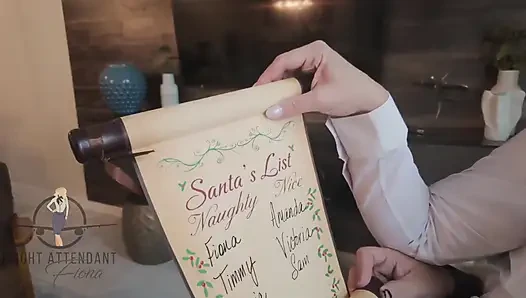 Santa's List
Naughty Nice
Fiona Amanda
Timmy Victoria
Sam
FLIGHT ATTENDANT
Fiona